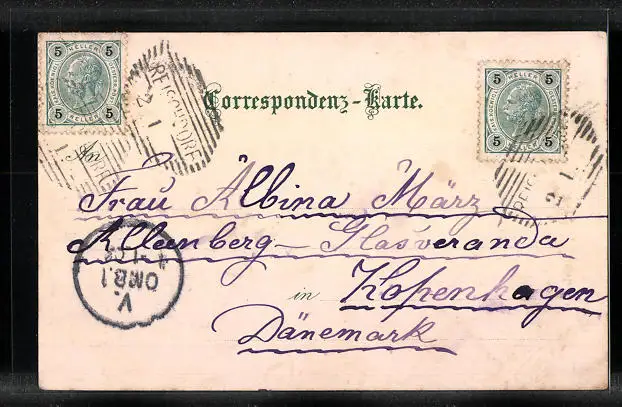 5 HELLER 5
5 HELLER 5
5 HELLER 5
5 HELLER 5
Correspondenz-Karte.
An
Frau Albina März
Alleenberg - Glasveranda
in Kopenhagen
Dänemark
V.
OMB.1